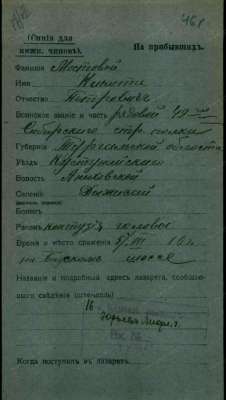 461
(Синія для
нижн. чиновъ).
На прибывшихъ.
Фамилія Мостовой
Имя Никита
Отчество Петровичъ
Воинское званіе и часть рядовой 49
Сибирскаго стр. полка
Губернія Тургайской области
Уѣздъ Кустанайскаго
Волость
Селеніе
Боленъ
Раненъ контузія головы
Время и мѣсто сраженія 8/III 16 г.
на шоссе
Названіе и подробный адресъ лазарета, сообщив-
шаго свѣдѣнія (штемпель)
16
Юрьевъ Лифл. г.
Когда поступилъ въ лазаретъ